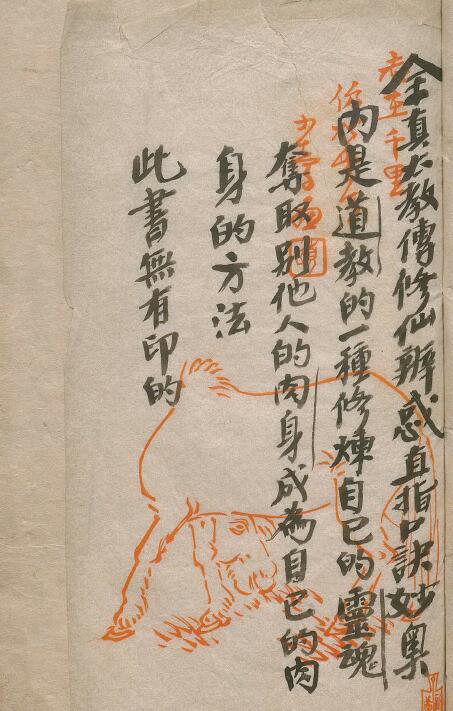 全真大教傳修仙辨惑直指口訣妙奧
內是道教的一種修煉自己的靈魂
奪取別他人的肉身成為自己的肉
身的方法
此書無有印的
千里